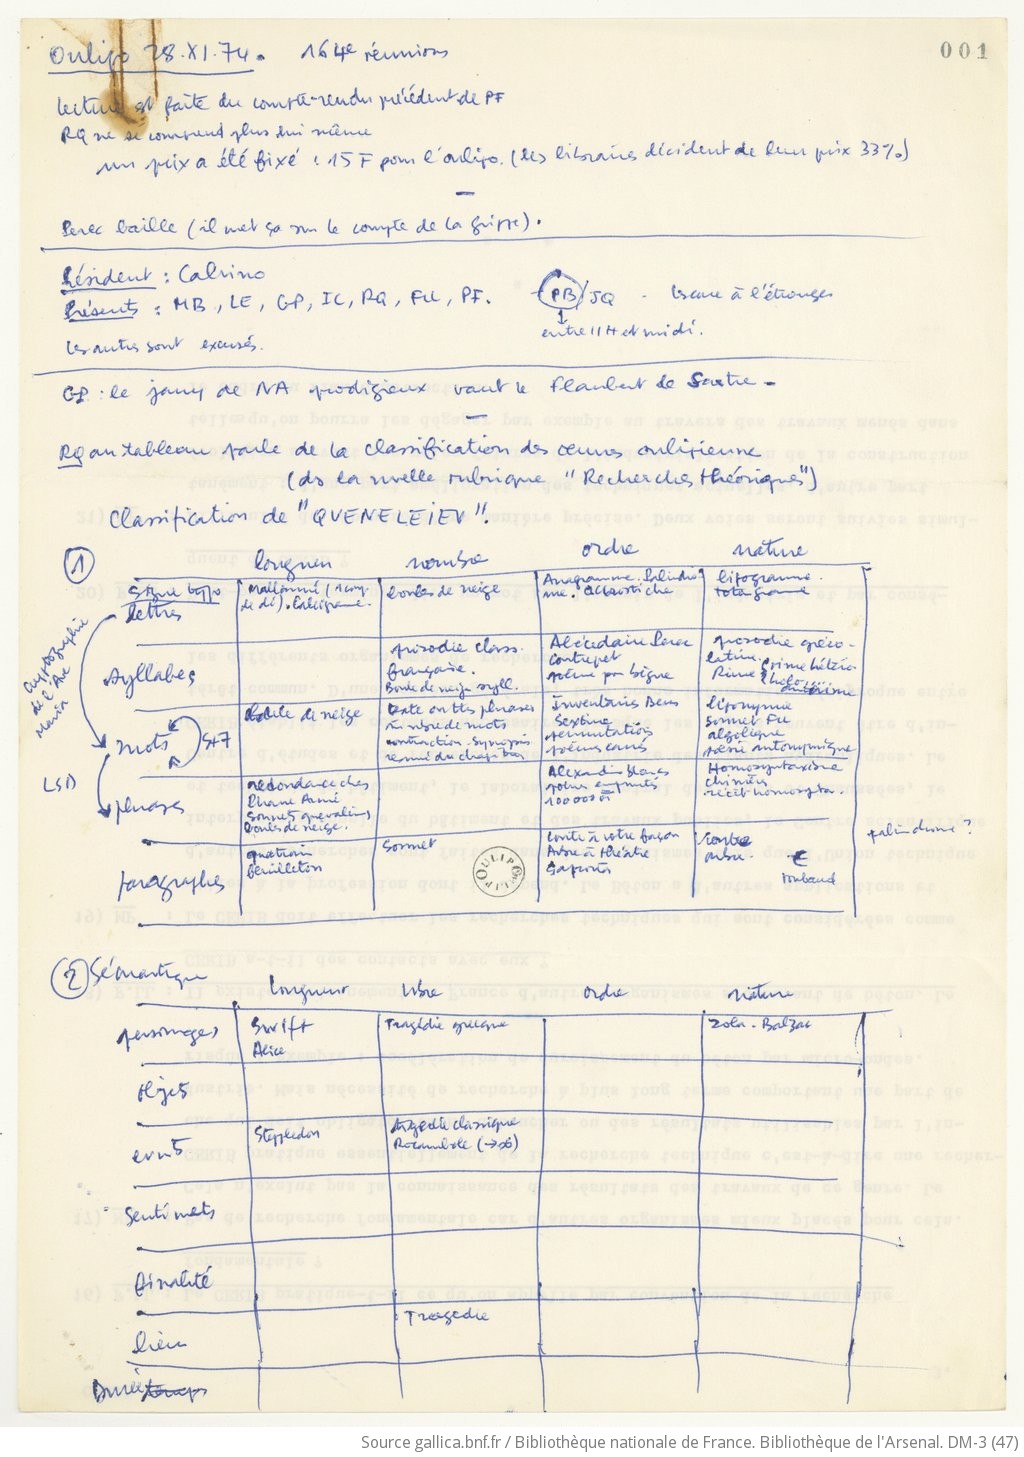 Oulipo 28.XI.74. 164e réunion
001
lecture est faite du compte-rendu précédent de PF
RQ ne se comprend plus lui même
un prix a été fixé : 15 F pour l'oulipo. (les libraires décident de leur prix 33%)
—
Perec baille (il met ça sur le compte de la grippe).
Président : Calvino
Présents : MB, LE, GP, IC, RQ, FLL, PF.
PB / JQ - à l'étranger
entre 11H et midi.
Les autres sont excusés.
GP : le jarry de NA prodigieux vaut le Flaubert de Sartre -
—
RQ au tableau parle de la classification des œuvres oulipienne
(ds la nvelle rubrique "Recherches théoriques")
Classification de "QVENELEIEV".
1
longueur nombre ordre nature
signe typo
lettres
Mallarmé (
de dé).
boules de neige
Anagramme. Palindro
me. acrostiche
lipogramme.
cryptographie
de l'Ave
Maria
syllabes
prosodie class.
française.
Boule de neige syll.
Alécédaire Perec
contrepet
poème par bègue
prosodie gréco-
latine.
Rime
mots
S+7
boule de neige
texte où ttes phrases
nbre de mots
contraction. synopsis
résumé du chapitre
Inventaires Bens
Sextine
permutations
poèmes carrés
liponymie
sonnet FLL
algolique
poésie antonymique
LSD
phrases
redondance chez
Phane Armé
sonnets quevaliens
boules de neige.
Alexandrin blancs
poèmes empruntés
100000 M
Homosyntaxisme
chimères
récit homosynta.
palindrome ?
paragraphes
quatrain
feuilleton
Sonnet
conte à votre façon
Arbre à théâtre
Saporta
€
roubaud
OULIPO
2 Sémantique
longueur nbre ordre nature
personnages
Swift
Alice
Tragédie grecque
Zola - Balzac
objets
evnts
Stapledon
tragédie classique
Rocambole (→∞)
Sentiments
finalité
lieu
Tragédie
Durée temps
Source gallica.bnf.fr / Bibliothèque nationale de France. Bibliothèque de l'Arsenal. DM-3 (47)